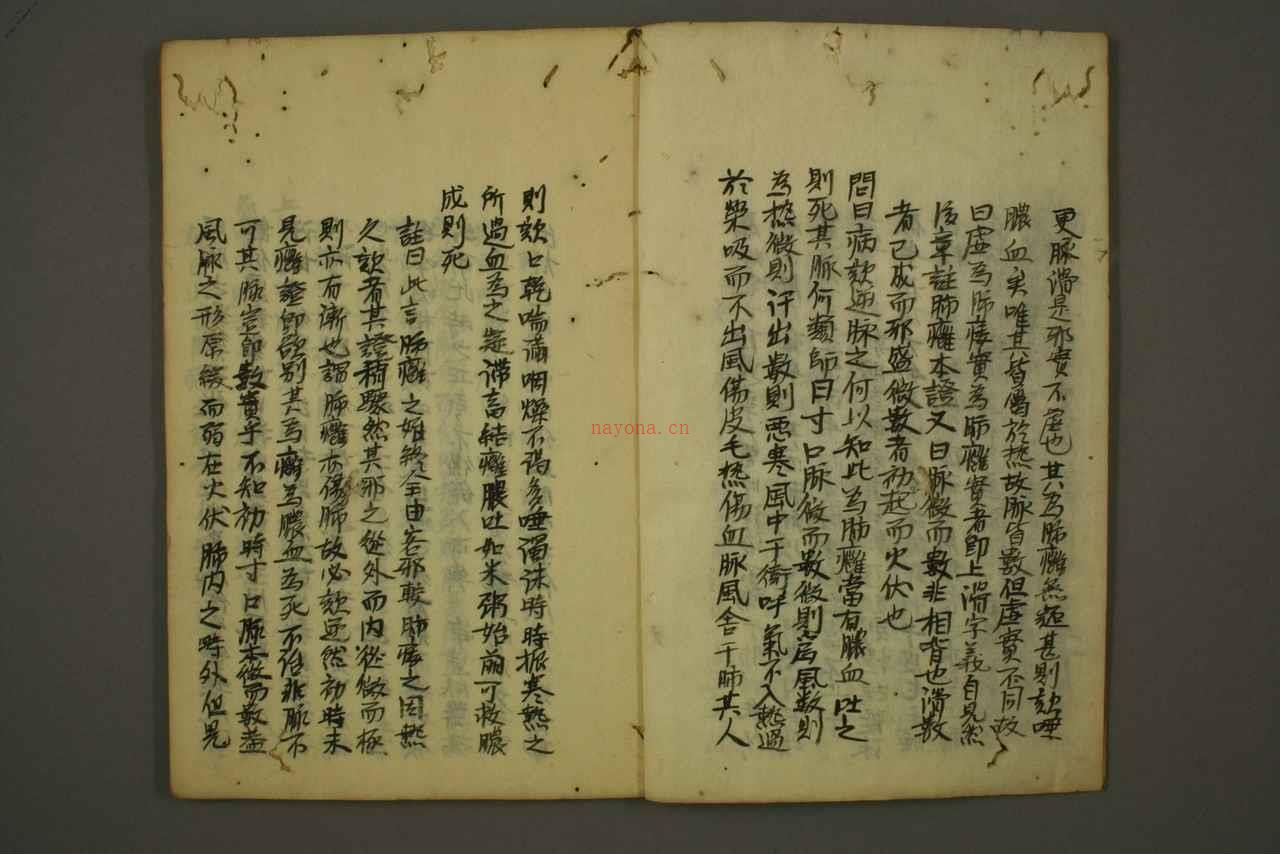 更脉滑是邪實不虛也其為肺癰無疑甚則欬唾
膿血矣唯其皆屬於熱故脉皆數但虛實不同故
曰虛為肺痿實為肺癰實者即上滑字義自見然
後章註肺癰本證又曰脉微而數非相背也滑數
者已成而邪盛微數者初起而火伏也
問曰病欬逆脉之何以知此為肺癰當有膿血吐之
則死其脉何類師曰寸口脉微而數微則為風數則
為熱微則汗出數則惡寒風中于衛呼氣不入熱過
於榮吸而不出風傷皮毛熱傷血脉風舍于肺其人
則欬口乾喘滿咽燥不渴多唾濁沫時時振寒熱之
所過血為之凝滯畜結癰膿吐如米粥始萌可救膿
成則死
註曰此言肺癰之始終全由客邪較肺痿之因熱
久欬者其證稍驟然其邪之從外而內從微而極
則亦有漸也謂肺癰亦傷肺故必欬逆然初時未
見癰證即欲別其為癰為膿血為死不能非脉不
可其脉豈即數實乎不知初時寸口脉本微而數蓋
風脉之形原緩而弱在火伏肺內之時外但見
nayona.cn